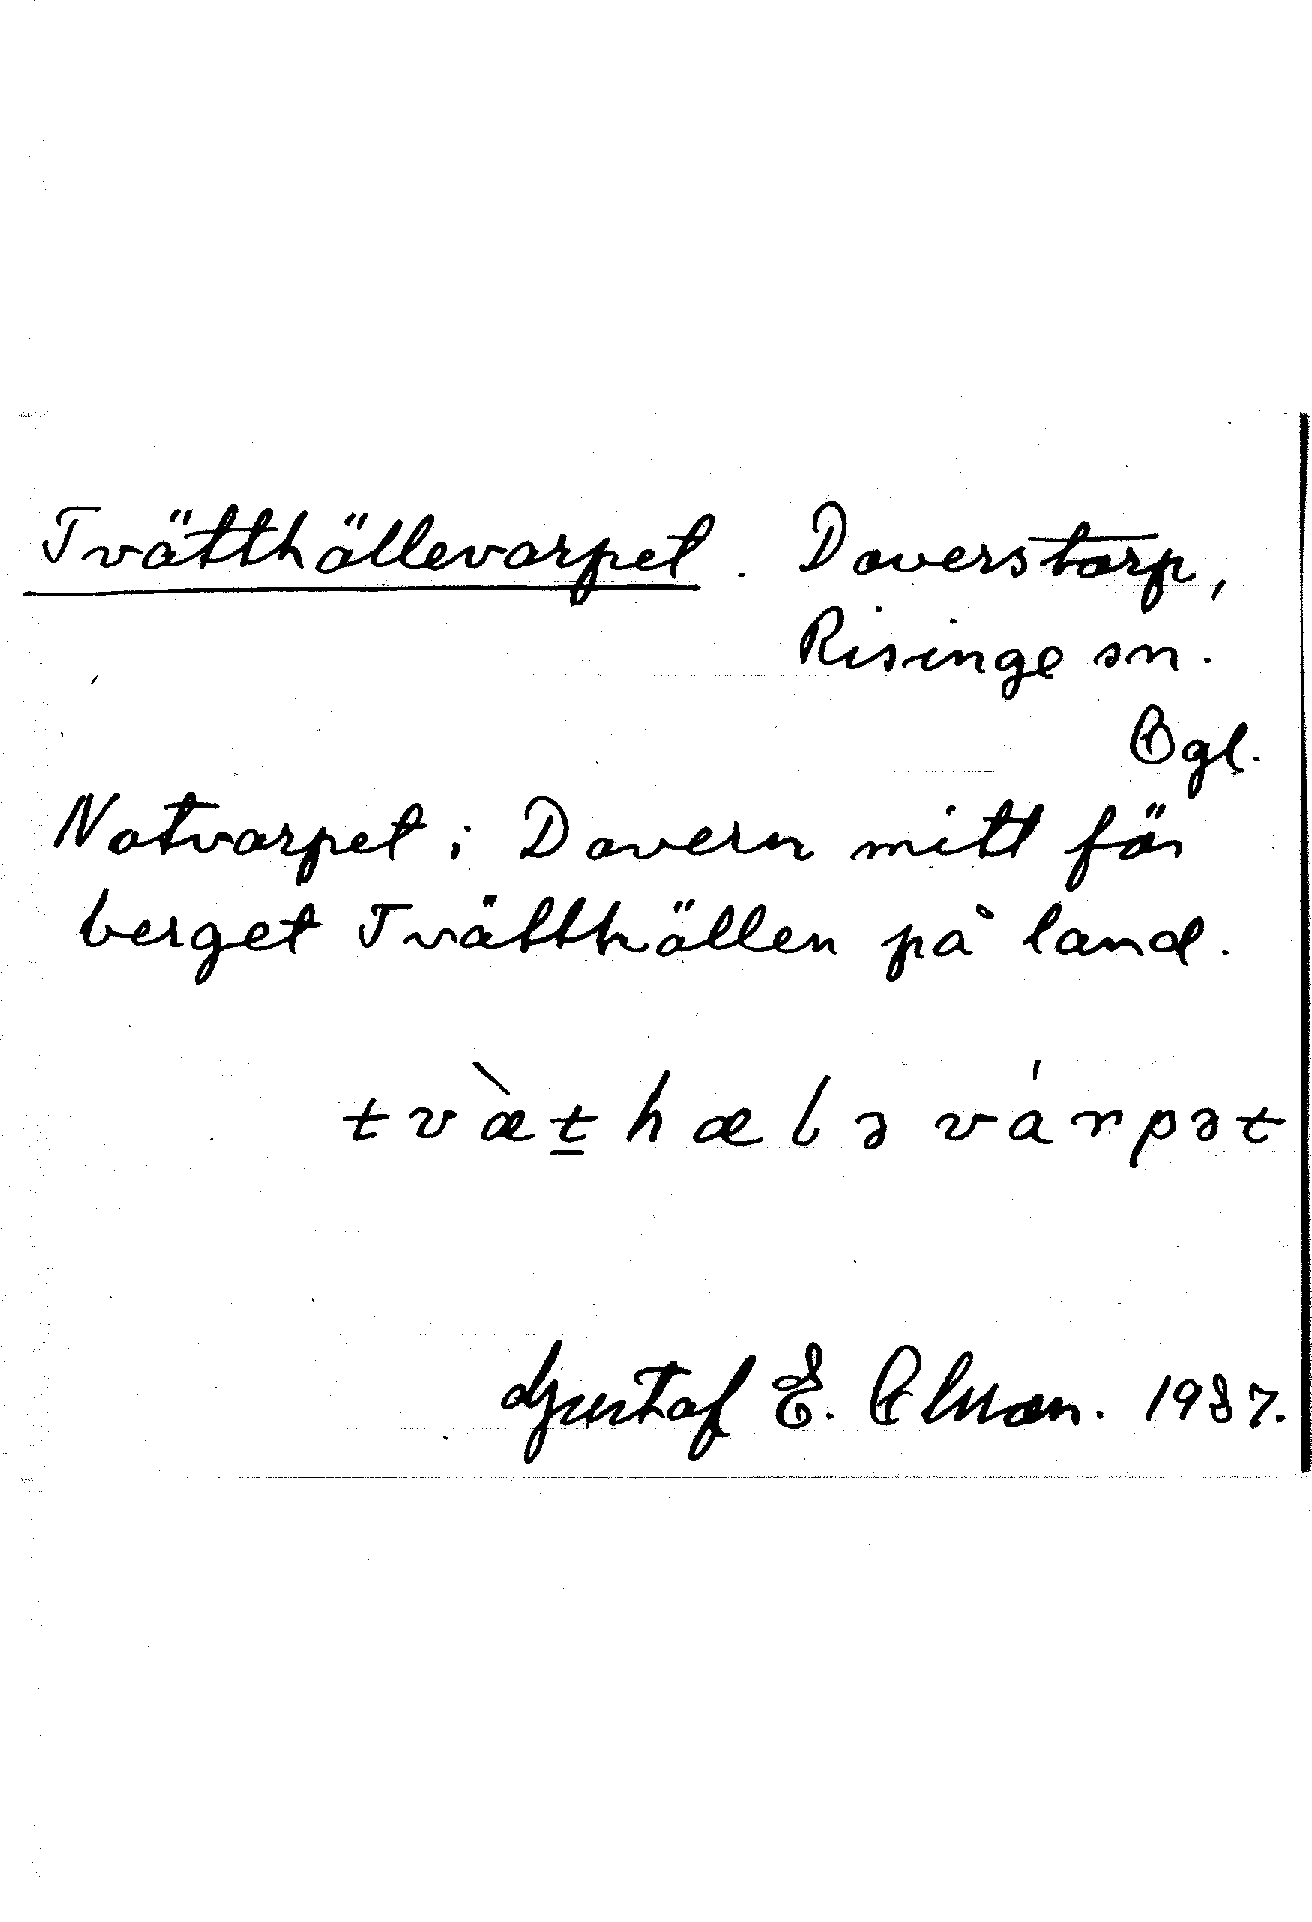 Tvätthällevarpet. Daverstorp,
Risinge sn.
Ögl.
Notvarpet i Davern mitt för
berget Tvätthällen på land.
tvæ̀t̲hælə várpət
Gustaf E. 1937.